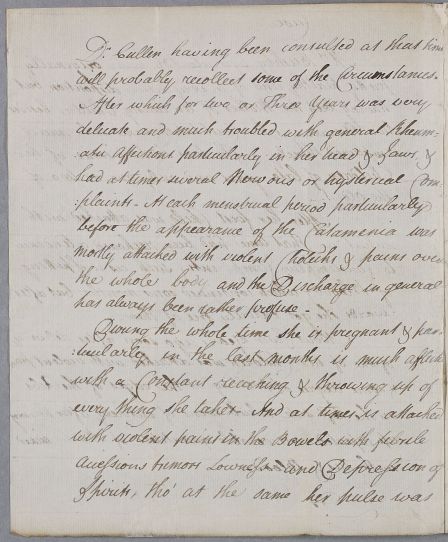 Dr. Cullen having been consulted at that time
will probably recollect some of the Circumstances.
After which for two or Three Years was very
delicate and much troubled with general Rheum-
atic Affections particularly in her head & Jaws, &
had at times several Nervous or hysterical Com
:plaints - At each menstrual period particularly
before the appearance of the Catamenia was
mostly attacked with violent Cholicks & pains over
the whole body and the Discharge in general
has always been rather profuse -
During the whole time she is pregnant & par-
ticularly in the last months is much afflicted
with a Constant reaching & throwing up of
every thing she takes. And at times is attacked
with violent pains in the Bowels with febrile
accessions tremors Lowness and Depression of
Spirits, tho' at the same her pulse was